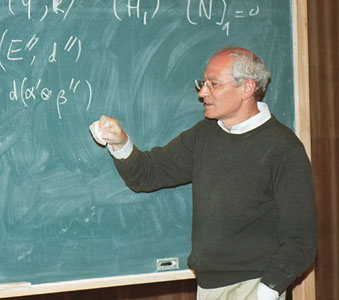 (H₁) (N)₁ = 0
(E'', d'')
d(α' ⊗ β'')